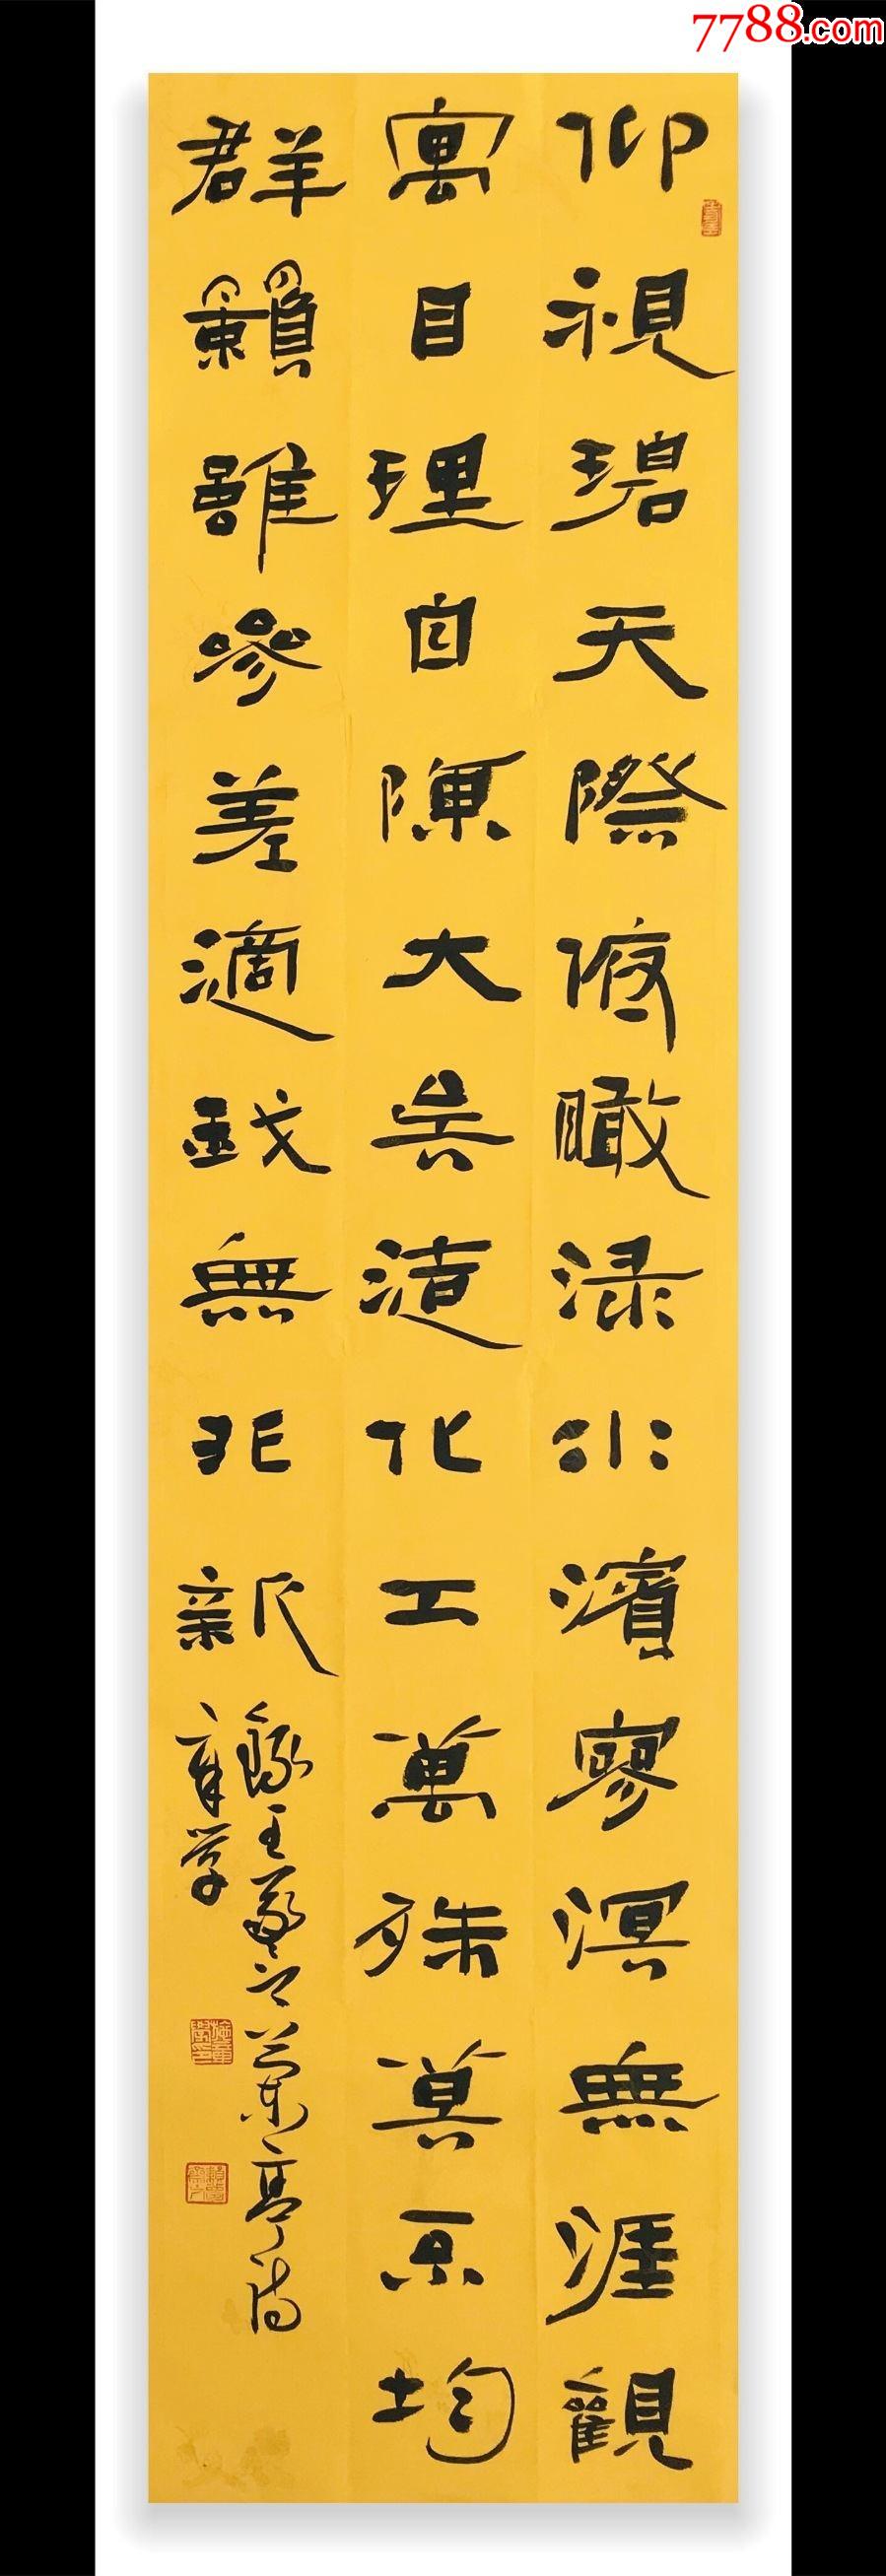 7788.com
仰視碧天際俯瞰渌水濱寥溟無涯觀
寓目理自陳大矣造化工萬殊莫不均
群籟雖參差適我無非新
錄王羲之兰亭诗
育学